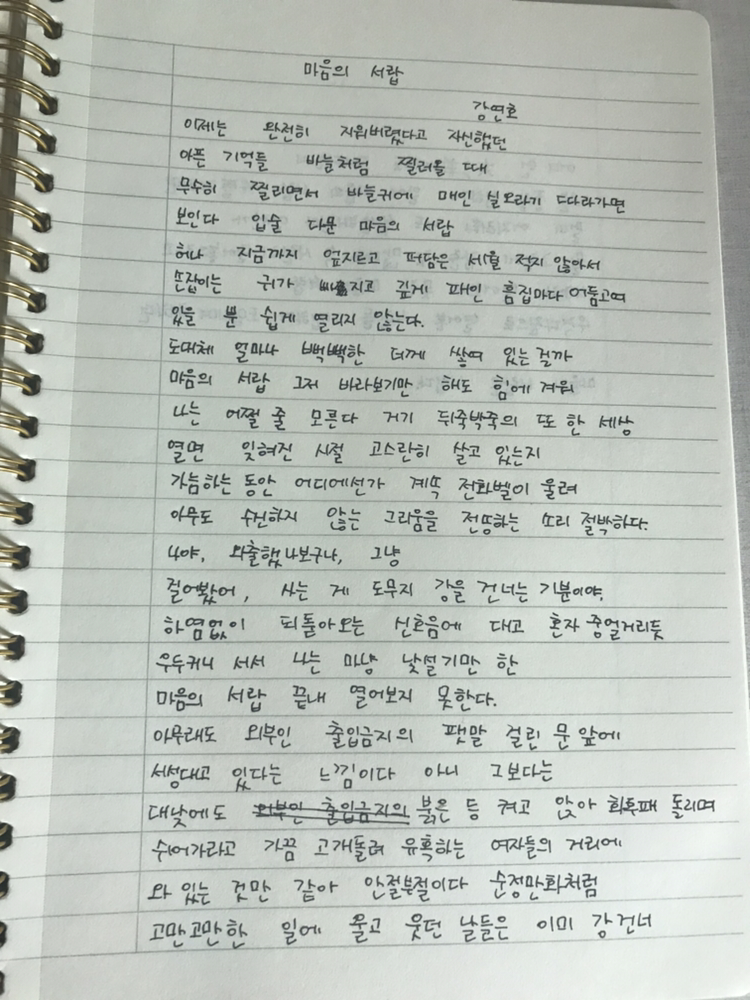 마음의 서랍
강연호
이제는 완전히 지워버렸다고 자신했던
아픈 기억들 바늘처럼 찔러올 때
무수히 찔리면서 바늘귀에 매인 실오라기 따라가면
보인다 입술 다문 마음의 서랍
허나 지금까지 엎지르고 퍼담은 세월 적지 않아서
손잡이는 귀가 빠지고 깊게 패인 흠집마다 어둠고여
있을 뿐 쉽게 열리지 않는다.
도대체 얼마나 뻑뻑한 더께 쌓여 있는 걸까
마음의 서랍 그저 바라보기만 해도 힘에 겨워
나는 어쩔 줄 모른다 거기 뒤죽박죽의 또 한 세상
열면 잊혀진 시절 고스란히 살고 있는지
가늠하는 동안 어디에선가 계속 전화벨이 울려
아무도 수신하지 않는 그리움을 전송하는 소리 절박하다.
나야, 외출했나보구나, 그냥
걸어봤어, 사는 게 도무지 강을 건너는 기분이야.
하염없이 되돌아오는 신호음에 대고 혼자 중얼거리듯
우두커니 서서 나는 마냥 낯설기만 한
마음의 서랍 끝내 열어보지 못한다.
아무래도 외부인 출입금지의 팻말 걸린 문 앞에
서성대고 있다는 느낌이다 아니 그보다는
대낮에도 외부인 출입금지의 붉은 등 켜고 앉아 화투패 돌리며
쉬어가라고 가끔 고개돌려 유혹하는 여자들의 거리에
와 있는 것만 같아 안절부절이다 순정만화처럼
고만고만한 일에 울고 웃던 날들은 이미 강 건너